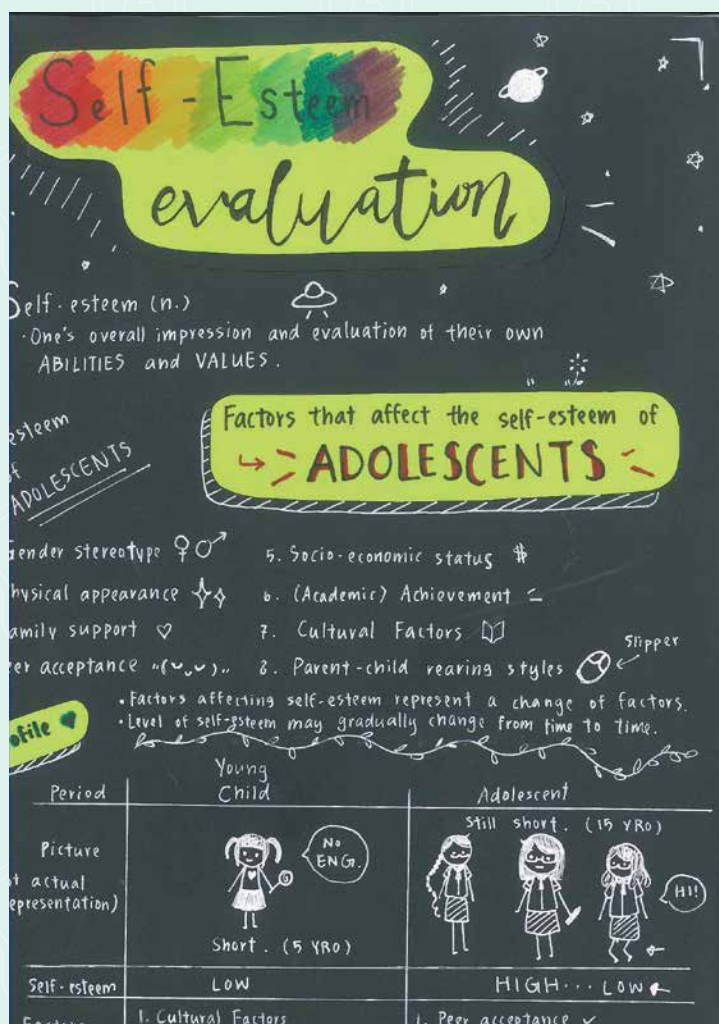 Self-Esteem
evaluation
Self-esteem (n.)
·One's overall impression and evaluation of their own
ABILITIES and VALUES.
esteem
of
ADOLESCENTS
Factors that affect the self-esteem of
ADOLESCENTS
ender stereotype ♀♂
hysical appearance
amily support ♡
er acceptance
5. Socio-economic status $
6. (Academic) Achievement
7. Cultural Factors
8. Parent-child rearing styles
Slipper
• Factors affecting self-esteem represent a change of factors.
• Level of self-esteem may gradually change from time to time.
ofile
Period
Young
Child
Adolescent
Picture
t actual
epresentation)
NO
ENG.
Short. (5 YRO)
Still short. (15 YRO)
HI!
Self-esteem
LOW
HIGH... LOW
1. Cultural Factors
1. Peer acceptance ✓